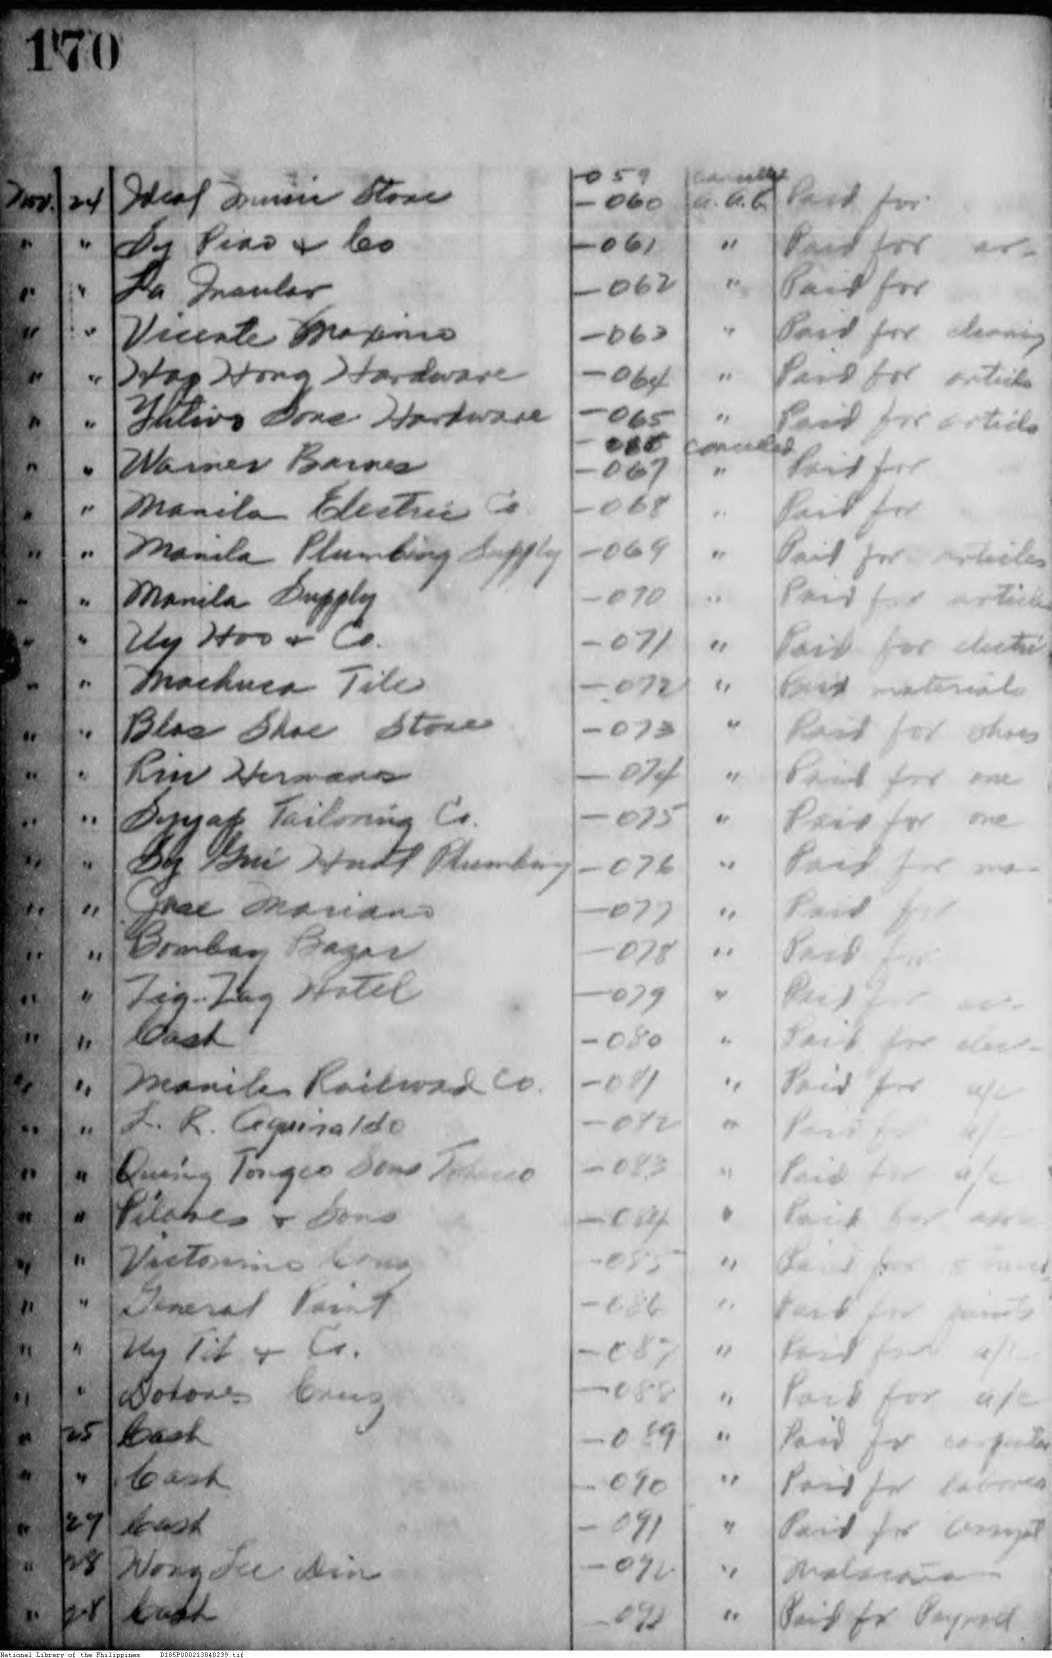 170
-059 cancelled
Nov. 24 Ideal Store -060 a.a.C. Paid for
" " Sy Piao & Co -061 " Paid for ar-
" " La Insular -062 " Paid for
" " Vicente Maximo -063 " Paid for cleaning
" " Hap Hong Hardware -064 " Paid for article
" " Yutivo Sons Hardware -065 " Paid for article
- cancelled
" " Warner Barnes -067 " Paid for
" " Manila Electric Co -068 " Paid for
" " Manila Plumbing Supply -069 " Paid for articles
" " Manila Supply -070 " Paid for article
" " Uy Hoo & Co. -071 " Paid for electri
" " Machuca Tile -072 " Paid materials
" " Blas Shoe Store -073 " Paid for shoes
" " Riu Hermanos -074 " Paid for one
" " Syyap Tailoring Co. -075 " Paid for one
" " Sy Plumbing -076 " Paid for ma-
" " Jose Mariano -077 " Paid for
" " Bombay Bazar -078 " Paid for
" " Zig-Zag Hotel -079 " Paid for
" " Cash -080 " Paid for
" " Manila Railroad Co. -081 " Paid for a/c
" " L. R. Aguinaldo -082 " Paid for a/c
" " Quing Tongco Sons Tobacco -083 " Paid for a/c
" " Pilares & Sons -084 " Paid for
" " Victorino -085 " Paid for
" " General Paint -086 " Paid for paints
" " Uy Tit & Co. -087 " Paid for a/c
" " Dolores Cruz -088 " Paid for a/c
" 25 Cash -089 " Paid for
" " Cash -090 " Paid for laborers
" 27 Cash -091 " Paid for
" 28 Wong Lee Din -092 " Malacañan
" 28 Cash -093 " Paid for Payroll
National Library of the Philippines D185P000213840239.tif